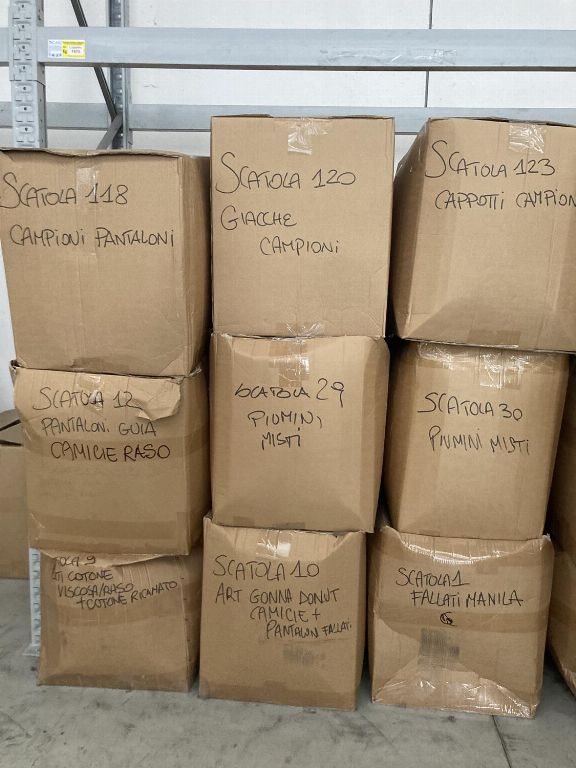 SCATOLA 118
CAMPIONI PANTALONI
SCATOLA 120
GIACCHE
CAMPIONI
SCATOLA 123
CAPPOTTI CAMPION
SCATOLA 12
PANTALONI GUIA
CAMICIE RASO
SCATOLA 29
PIUMINI
MISTI
SCATOLA 30
PIUMINI MISTI
TOLA 9
TI COTONE
VISCOSA/RASO
+COTONE RICAMATO
SCATOLA 10
ART GONNA DONUT
CAMICIE +
PANTALONI FALLATI
SCATOLA 1
FALLATI MANILA